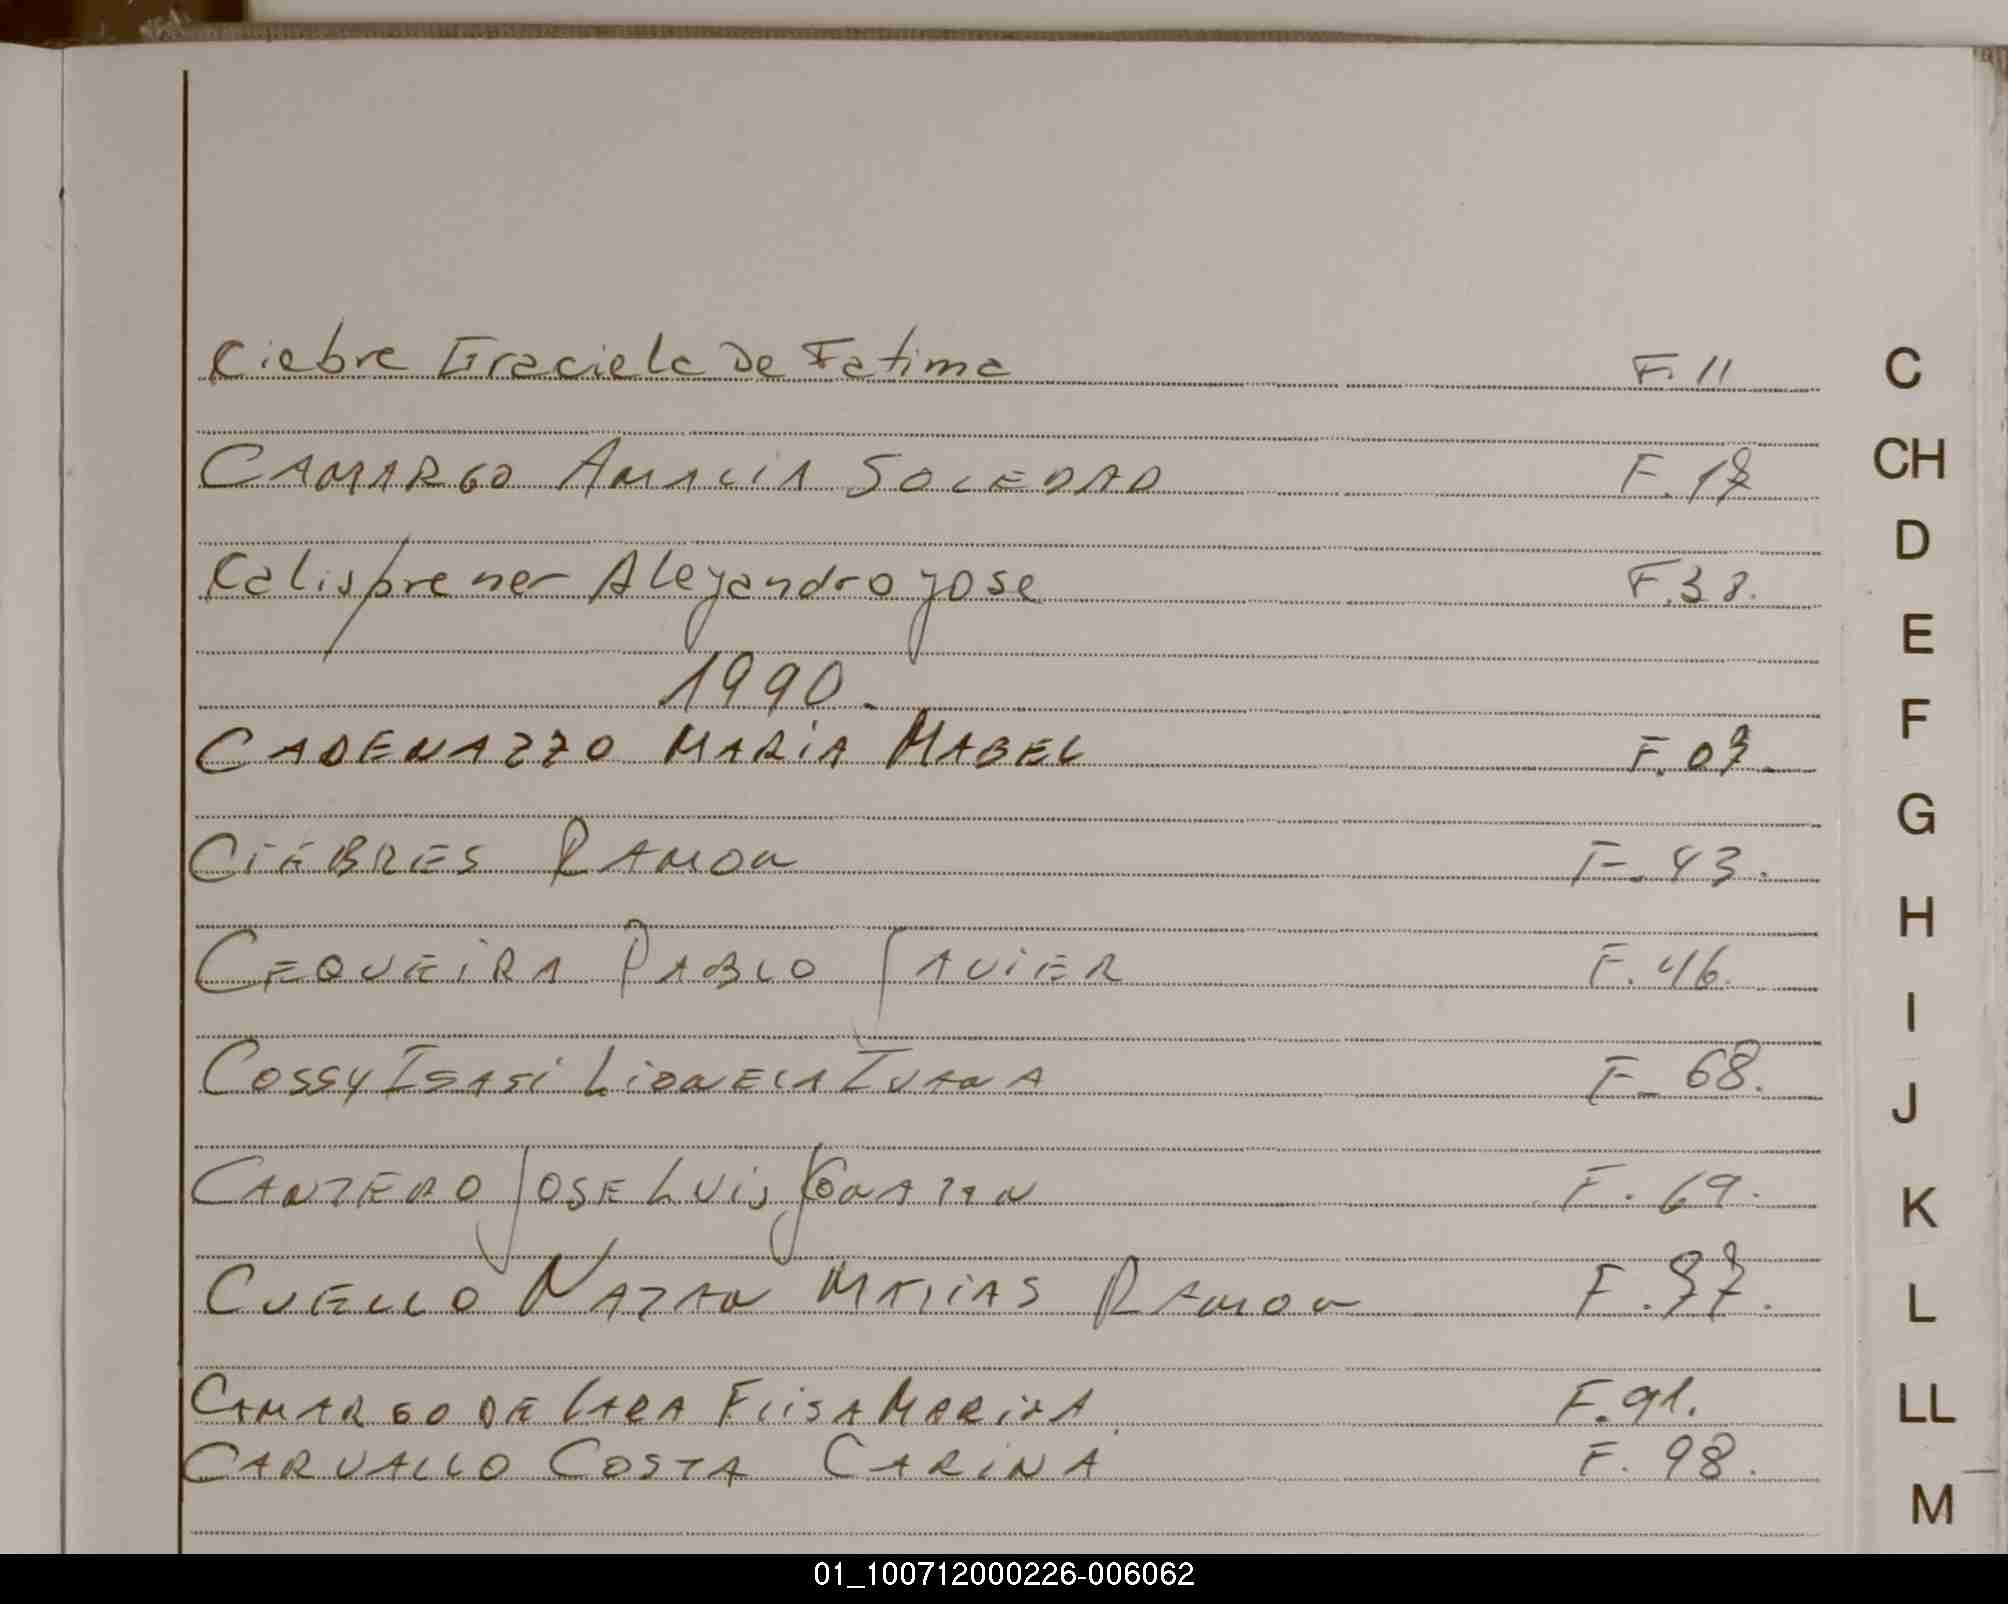 Ciebre Graciela De Fatima F. 11 C
CAMARGO AMALIA SOLEDAD F. 17 CH
D
Calisprener Alejandro Jose F. 38. E
1990. F
CADENAZZO MARIA MABEL F. 07
G
CIEBRES RAMON F. 43.
H
CEQUEIRA PABLO JAVIER F. 46.
I
COSSY ISASI LIONELA IVANA F. 68.
J
CANTERO JOSE LUIS JONATAN F. 69. K
CUELLO NATAN MATIAS RAMON F. 87. L
CAMARGO DE LARA ELISA MARINA F. 91. LL
CARVALLO COSTA CARINA F. 98.
M
01_100712000226-006062